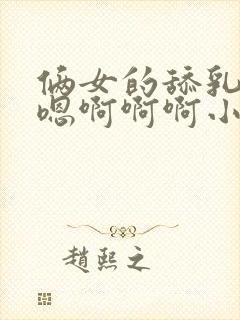 俩女的舔乳
嗯啊啊啊小
趙熙之